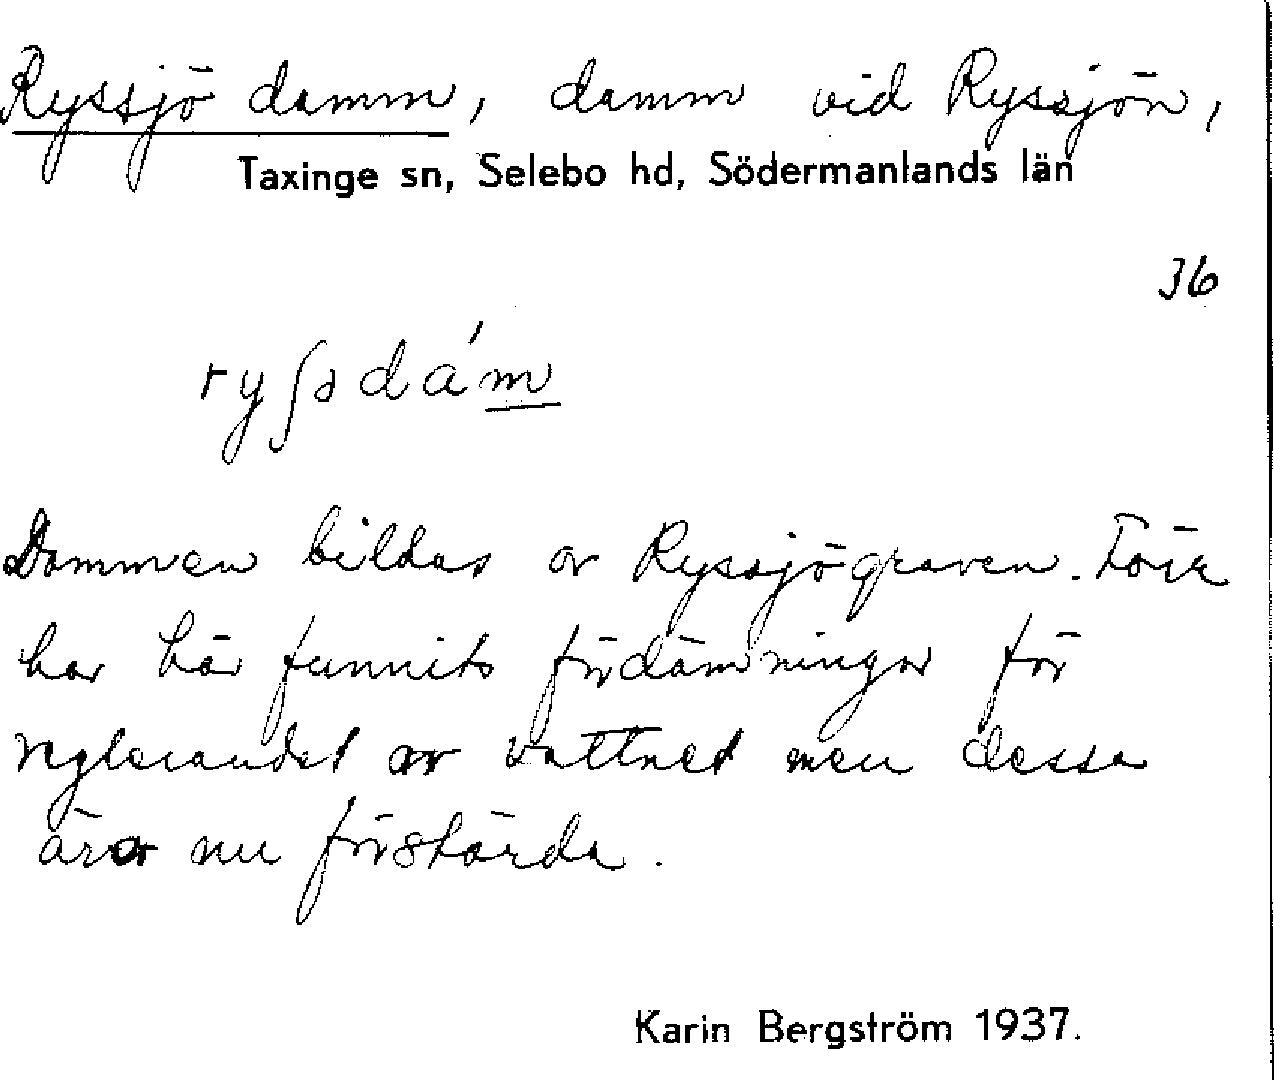 Ryssjö damm, damm vid Ryssjön,
Taxinge sn, Selebo hd, Södermanlands län
36
ryʃsdám
Dammen bildas av Ryssjögraven. Förr
har här funnits fördämningar för
reglerandet av vattnet men dessa
äro nu förstörda.
Karin Bergström 1937.